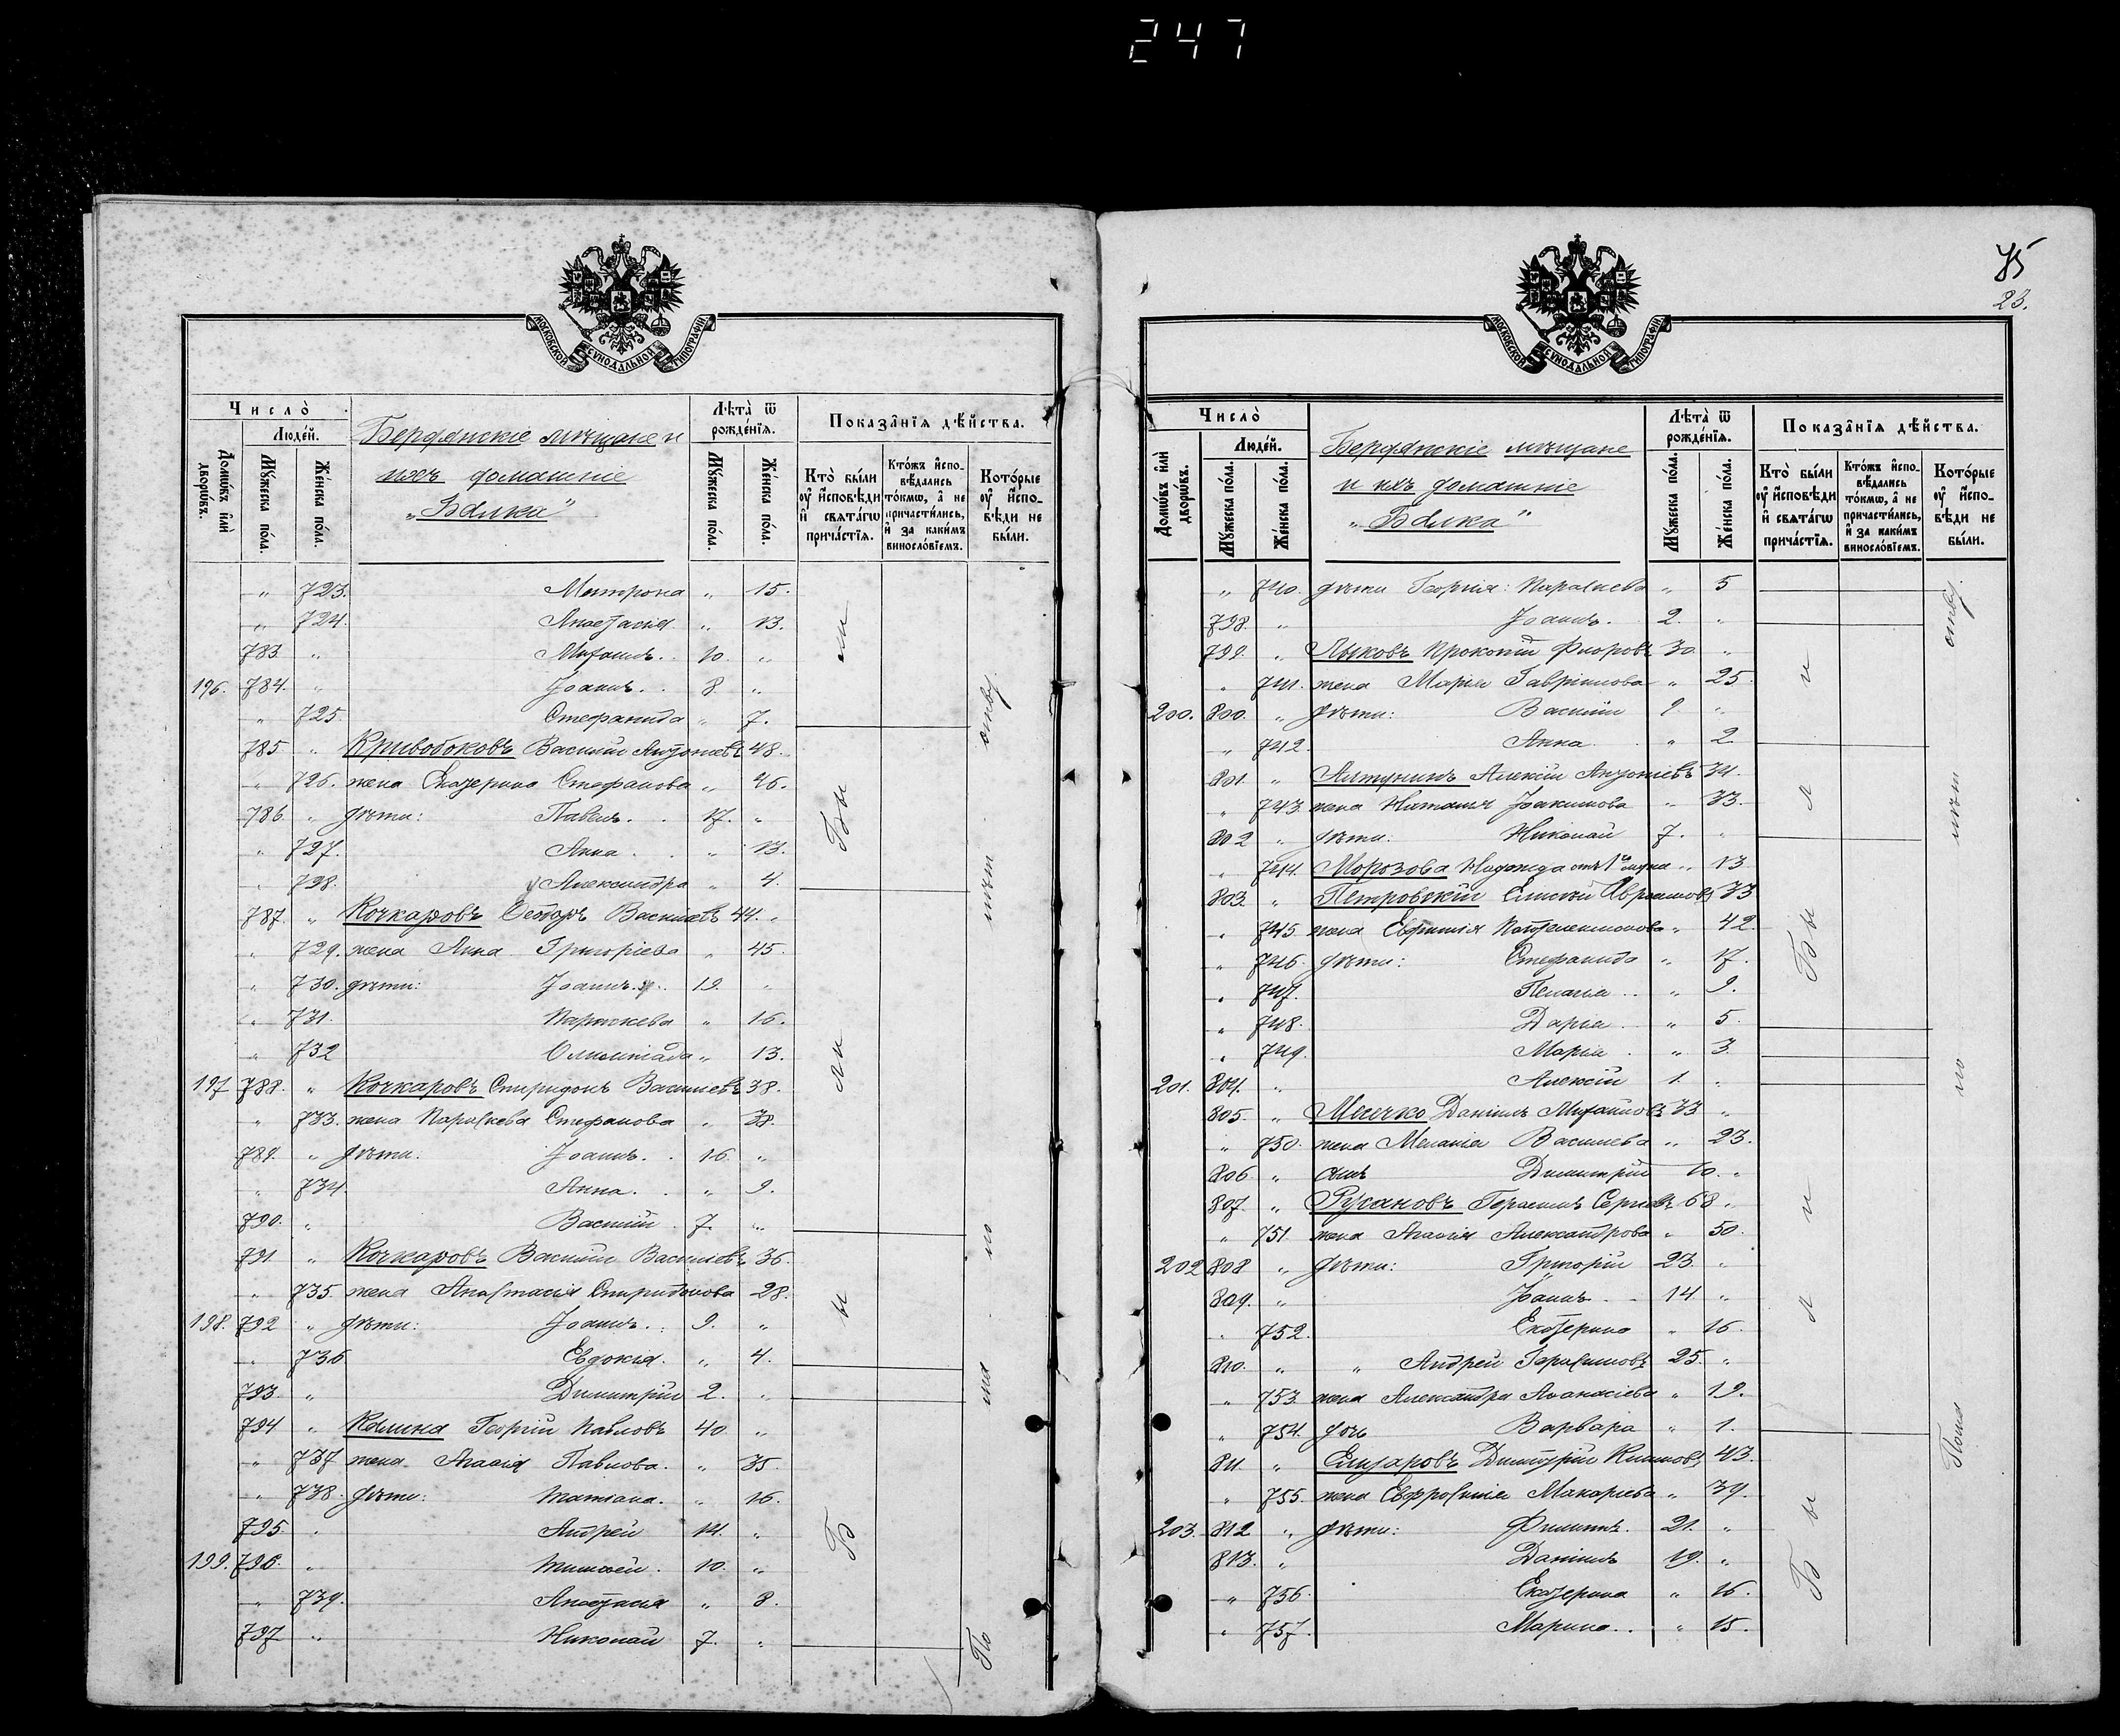 247
МОСКОВСКОЙ СѴНОДАЛЬНОЙ ТИПОГРАФІИ
Число̀
Люде́й.
Домѡ́въ и҆лѝ дворѡ́въ.
Мꙋ́жеска по́ла.
Же́нска по́ла.
Бердянскіе мѣщане и
ихъ домашніе
„Балка“
Лѣта̀ ѿ рожде́нїѧ.
Мꙋ́жеска по́ла.
Же́нска по́ла.
Показа̂нїѧ дѣ́йства.
Кто̀ бы́ли ᲂу҆ и҆сповѣди и҆ свѧта́гѡ прича́стїѧ.
Кто́жъ и҆спо-вѣдались то́кмѡ, а҆ не причасти́лись, и҆ за каки́мъ винослⷪ҇о́вїемъ.
Кото́рые ᲂу҆ и҆спо-вѣди не бы́ли.
„ 723. Матрона „ 15.
„ 724. Анастасія „ 13.
783. „ Михаилъ. 10. „
196. 784. „ Іоаннъ. 8. „
„ 725. Стефанида „ 7.
785 „ Кривобоковъ Василій Антоніевъ 48.
„ 726. жена Екатерина Стефанова „ 46.
786. „ дѣти: Павелъ. 17. „
„ 727. Анна. „ 13.
„ 728. Александра „ 4.
787. „ Кочкаровъ Ѳеодоръ Васильевъ 44. „
„ 729. жена Анна Григоріева „ 45.
„ 730. дѣти: Іоаннъ. 19. „
„ 731. Параскева „ 16.
„ 732 Олимпіада „ 13.
197 788. „ Кочкаровъ Спиридонъ Васильевъ 38.
„ 733. жена Параскева Стефанова „ 38.
789. „ дѣти. Іоаннъ. 16. „
„ 734. Анна. „ 9.
790. „ Василій 7. „
791 „ Кочкаровъ Василій Васильевъ 36.
„ 735. жена Анастасія Спиридонова 28.
198. 792 „ дѣти: Іоаннъ. 9. „
„ 736 Евдокія. „ 4.
793. „ Димитрій 2. „
794 „ Калина Георгій Павловъ 40. „
„ 737 жена Агаѳія Павлова. „ 35.
„ 738. дѣти: Татіана. „ 16.
795. „ Андрей 14. „
199. 796. „ Тимоѳей. 10. „
„ 739. Анастасія „ 8.
797 „ Николай 7. „
Были
Были
По
нѣтъ
75
23.
МОСКОВСКОЙ СѴНОДАЛЬНОЙ ТИПОГРАФІИ
Число̀
Люде́й.
Домѡ́въ и҆лѝ дворѡ́въ.
Мꙋ́жеска по́ла.
Же́нска по́ла.
Бердянскіе мѣщане
и ихъ домашніе
„Балка“
Лѣта̀ ѿ рожде́нїѧ.
Мꙋ́жеска по́ла.
Же́нска по́ла.
Показа̂нїѧ дѣ́йства.
Кто̀ бы́ли ᲂу҆ и҆сповѣди и҆ свѧта́гѡ прича́стїѧ.
Кто́жъ и҆спо-вѣдались то́кмѡ, а҆ не причасти́лись, и҆ за каки́мъ винослⷪ҇о́вїемъ.
Кото́рые ᲂу҆ и҆спо-вѣди не бы́ли.
„ 740. дѣти Георгія: Параскева „ 5
798. „ Іоаннъ. 2. „
799. „ Лыковъ Прокопій Флоровъ 30 „
„ 741. жена Марія Гавріилова „ 25.
200. 800. „ дѣти: Василій 9 „
„ 742. Анна. „ 2.
801. „ Алтунинъ Алексій Антоніевъ 34.
„ 743. жена Наталія Іоакимова „ 33.
802 „ дѣти. Николай 7. „
„ 744. Морозова Надежда отъ 1го мужа „ 13
803 „ Петровскій Елисей Авраамовъ 73
„ 745. жена Евфимія Пантелеимонова „ 42.
„ 746. дѣти: Стефанида „ 17.
„ 747. Пелагія „ 9.
„ 748. Дарія „ 5.
„ 749. Марія „ 3.
201. 804. „ Алексій 1. „
805. „ Даніилъ Михайловъ 33 „
„ 750. жена Меланія Васильева „ 23.
806 „ сынъ Димитрій 10. „
807. „ Русановъ Герасимъ Сергіевъ 68 „
„ 751. жена Агаѳія Александрова „ 50.
202 808 „ дѣти: Григорій 23. „
809. „ Іоаннъ 14 „
„ 752. Екатерина „ 16.
810. „ „ Андрей Герасимовъ 25. „
„ 753. жена Александра Аѳанасіева „ 19.
„ 754. дочь Варвара „ 1.
811. „ Елизаровъ Димитрій 43.
„ 755. жена Евфросинія Макаріева „ 39.
203. 812 „ дѣти: Филиппъ. 21. „
813. „ Даніилъ 19. „
„ 756. Екатерина „ 16.
„ 757. Марина „ 15.
Были
Были
нѣтъ